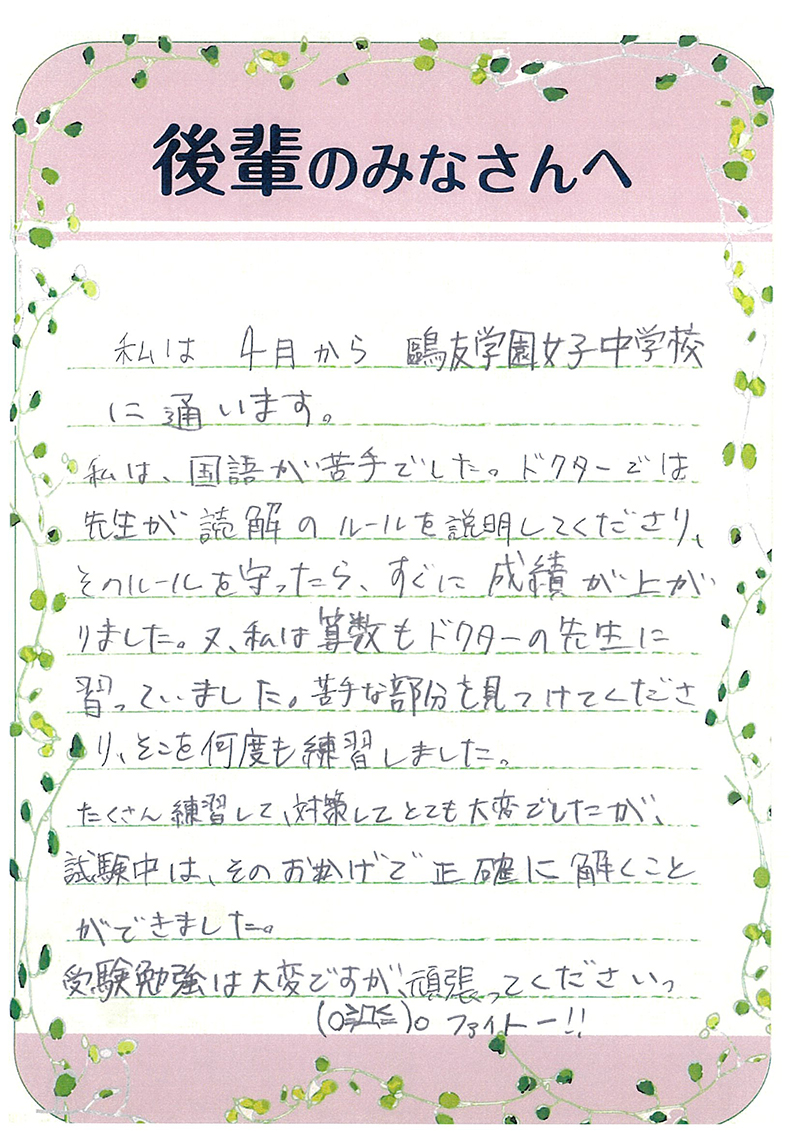 後輩のみなさんへ
私は 4月から 鷗友学園女子中学校
に通います。
私は、国語が苦手でした。ドクターでは
先生が読解のルールを説明してくださり、
そのルールを守ったら、すぐに成績が上が
りました。又、私は算数もドクターの先生に
習っていました。苦手な部分を見つけてくださ
り、そこを何度も練習しました。
たくさん練習して、対策してとても大変でしたが、
試験中は、そのおかげで正確に解くこと
ができました。
受験勉強は大変ですが、頑張ってくださいっ
(o≧Д≦)o ファイトー!!